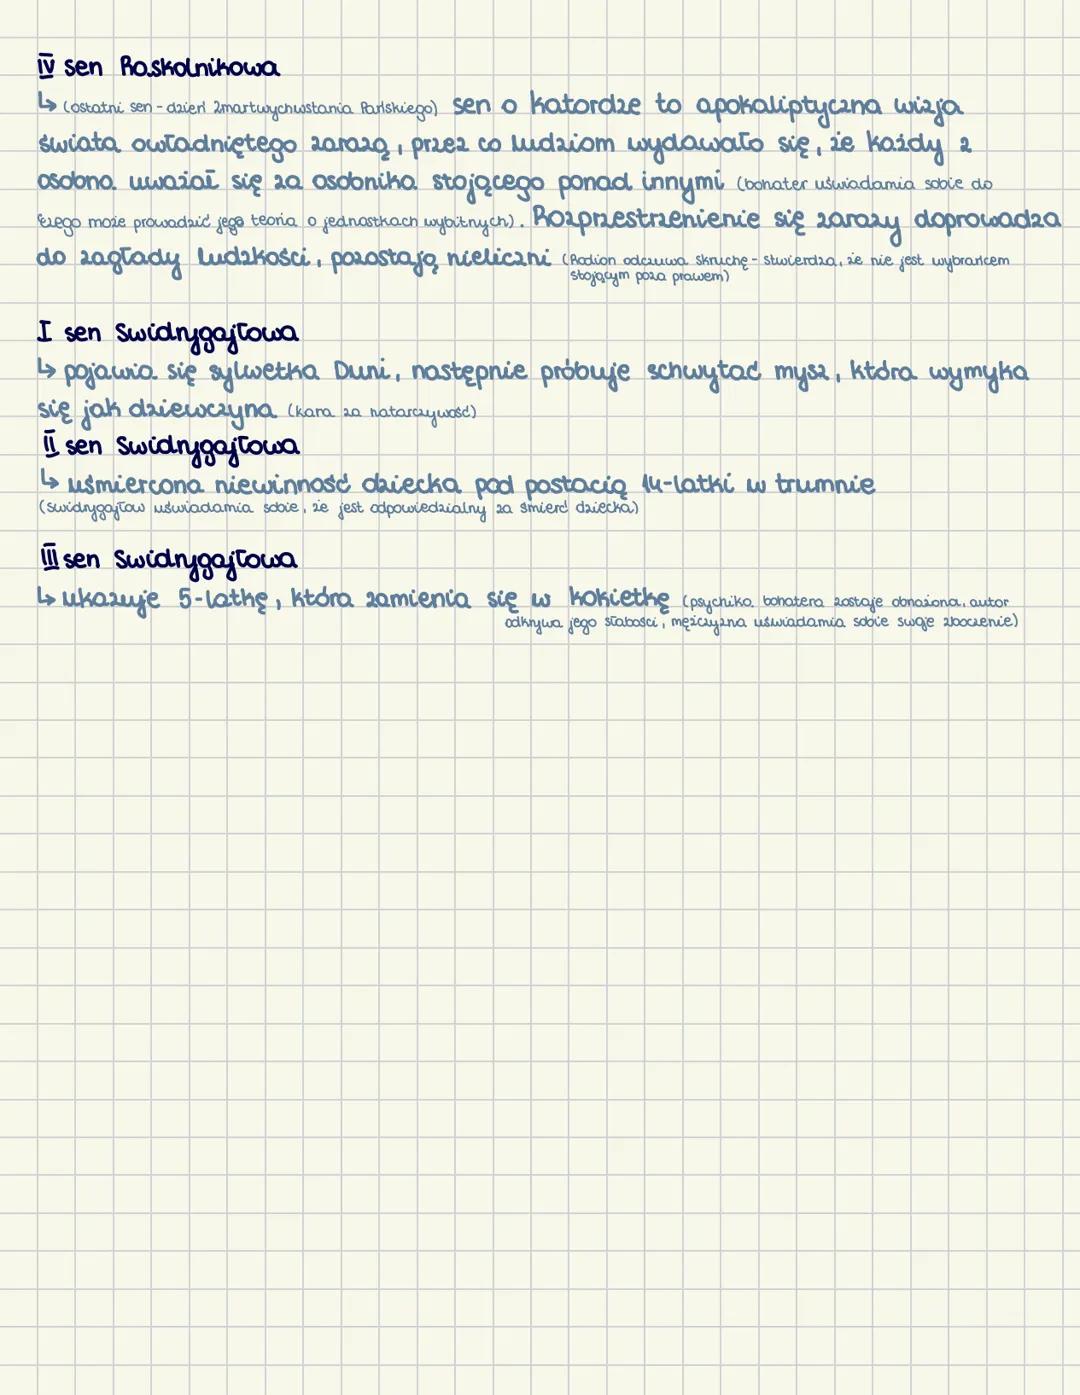 IV sen Raskolnikowa
↳ (ostatni sen - dzień Zmartwychwstania Pańskiego) sen o katordze to apokaliptyczna wizja
świata owładniętego zarazą, przez co ludziom wydawało się, że każdy z
osobna uważał się za osobnika stojącego ponad innymi (bohater uświadamia sobie do
czego może prowadzić jego teoria o jednostkach wybitnych). Rozprzestrzenienie się zarazy doprowadza
do zagłady ludzkości, pozostają nieliczni (Rodion odczuwa skruchę - stwierdza, że nie jest wybrańcem
stojącym poza prawem)
I sen Swidrygajłowa
↳ pojawia się sylwetka Duni, następnie próbuje schwytać mysz, która wymyka
się jak dziewczyna (kara za natarczywość)
II sen Swidrygajłowa
↳ uśmiercona niewinność dziecka pod postacią 14-latki w trumnie
(swidrygajłow uświadamia sobie, że jest odpowiedzialny za śmierć dziecka)
III sen Swidrygajłowa
↳ ukazuje 5-latkę, która zamienia się w kokietkę (psychika bohatera zostaje obnażona, autor
odkrywa jego słabości, mężczyzna uświadamia sobie swoje zboczenie)